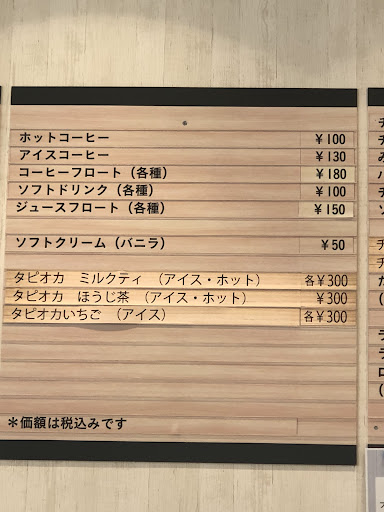 ホットコーヒー ￥100
アイスコーヒー ￥130
コーヒーフロート（各種） ￥180
ソフトドリンク（各種） ￥100
ジュースフロート（各種） ￥150
ソフトクリーム（バニラ） ￥50
タピオカ　ミルクティ　（アイス・ホット） 各￥300
タピオカ　ほうじ茶　（アイス・ホット） ￥300
タピオカいちご　（アイス） 各￥300
＊価額は税込みです